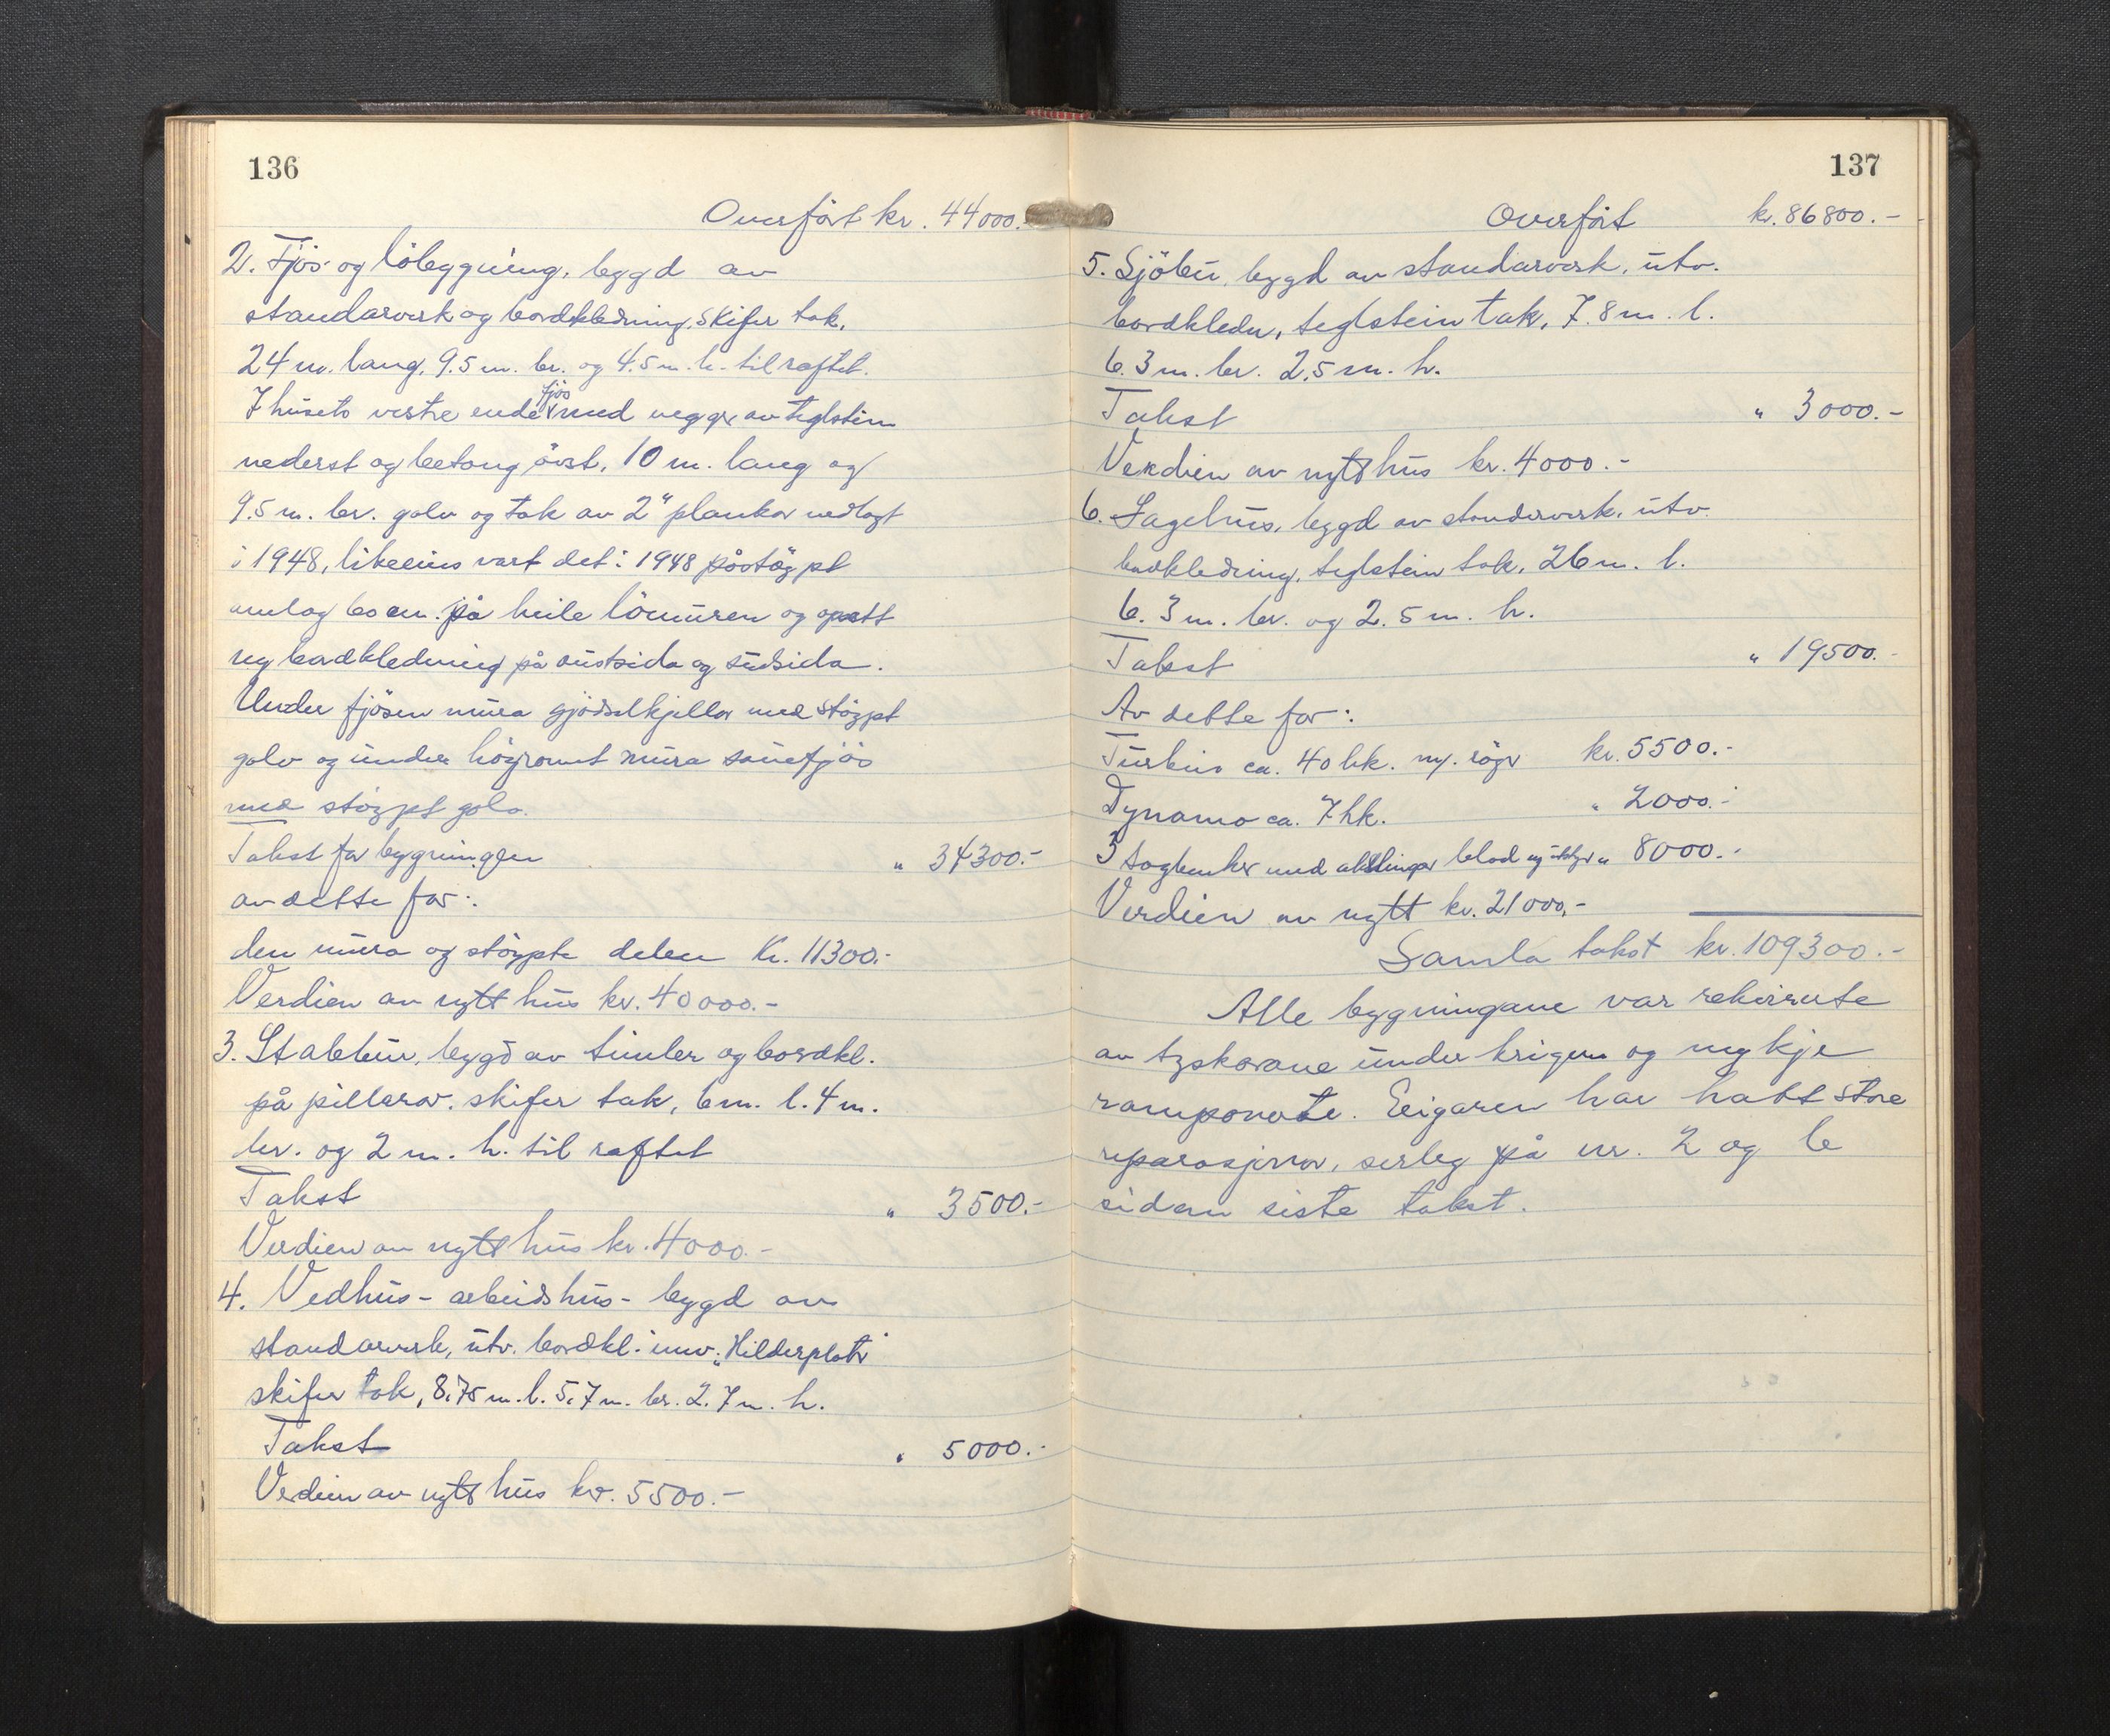 136
Overført kr. 44000.-
2. Fjös og löbygning, bygd av
standarverk og bordkledning, skifer tak,
24 m. lang, 9.5 m. br. og 4.5 m. h. til raftet.
I husets vestre ende fjös med vegger av teglstein
nederst og betong övst, 10 m. lang og
9.5 m. br. golv og tak av 2" plankar nedlagt
i 1948, likeeins vart det i 1948 påstöypt
umlag 60 cm. på heile lömuren og opsett
ny bordkledning på austsida og sudsida.
Under fjösen mura gjödselkjellar med stöypt
golv og under höyromet mura sauefjös
med stöypt golv.
Takst for bygningen " 34300.-
av dette for:
den mura og stöypte delen Kr. 11300.-
Verdien av nytt hus kr. 40000.-
3. Stabbur, bygd av timber og bordkl.
på pillarar. skifer tak, 6 m. l. 4 m.
br. og 2 m. h. til raftet
Takst " 3500.-
Verdien av nytt hus kr. 4000.-
4. Vedhus - arbeidshus - bygd av
standarverk, utv. bordkl. innv. "Hilderplater"
skifer tak, 8,75 m. l. 5,7 m. br. 2.7 m. h.
Takst " 5000.-
Verdien av nytt hus kr. 5500.-
137
Overført kr. 86800.-
5. Sjöbu, bygd av standarverk, utv.
bordkledn, teglstein tak, 7.8 m. l.
6.3 m. br. 2,5 m. h.
Takst " 3000.-
Verdien av nytt hus kr. 4000.-
6. Sagehus, bygd av standerverk, utv.
bordkledning, teglstein tak, 26 m. l.
6.3 m. br. og 2.5 m. h.
Takst " 19500.-
Av dette for:
Turbin ca. 40 hk. m/. röyr kr. 5500.-
Dynamo ca. 7 hk. " 2000.-
3 sagbenker med akslingar blad og utstyr " 8000.-
Verdien av nytt kr. 21000,-
Samla takst kr. 109300.-
Alle bygningane var rekvirerte
av tyskarane under krigen og mykje
ramponerte. Eigaren har hatt store
reparasjonar, serleg på nr. 2 og 6
sidan siste takst.